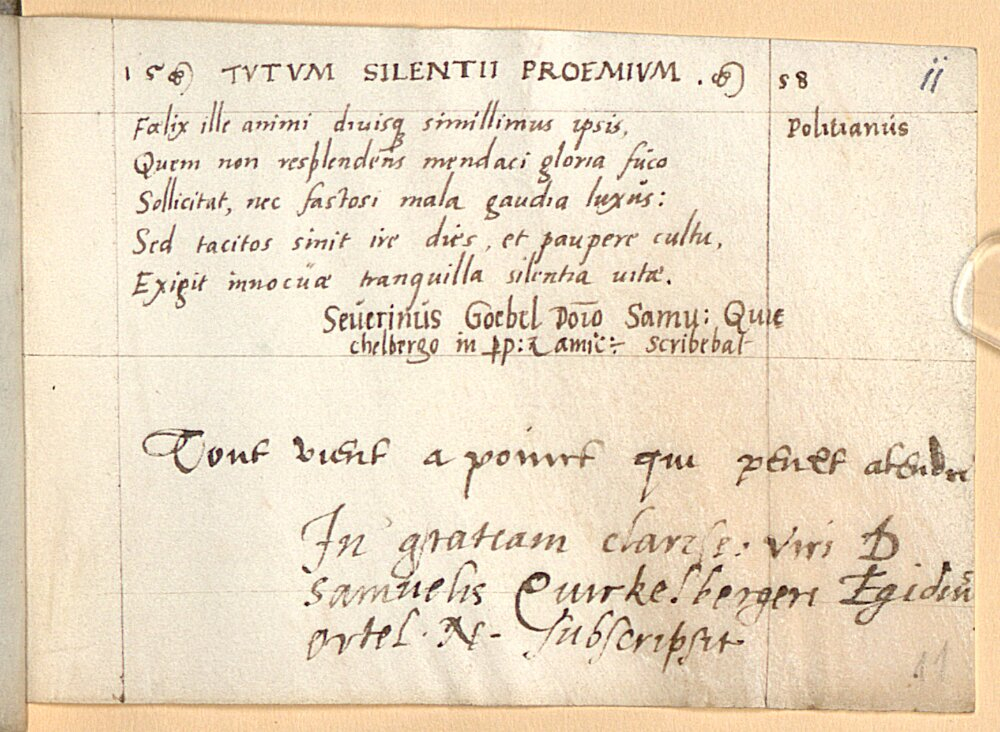 15 TVTVM SILENTII PROEMIVM . 58 ii
Fœlix ille animi diuisq simillimus ipsis,
Politianus
Quem non resplendens mendaci gloria fuco
Sollicitat, nec fastosi mala gaudia luxus:
Sed tacitos sinit ire dies, et paupere cultu,
Exigit innocuæ tranquilla silentia uitæ.
Seuerinus Goebel Dōīo Samu: Quic
chelbergo in amic: scribebat
Tout vient a poinct qui peult atendre
In gratiam clariss: viri D
Samuelis Quickelbergeri Egidiu
ortel. N- subscripsit
11